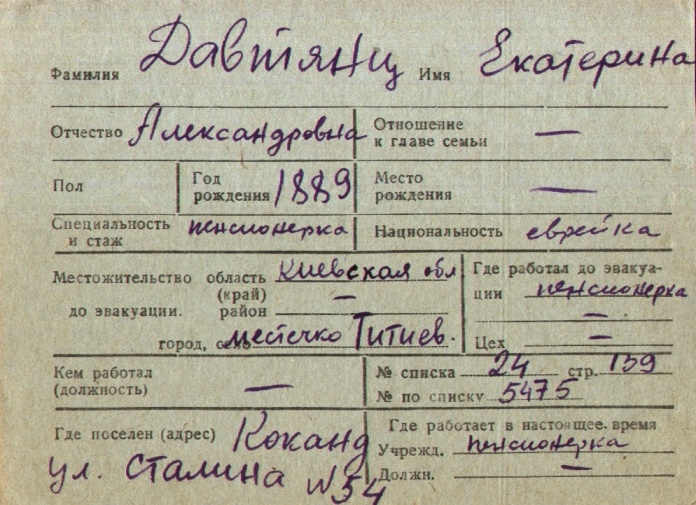 Фамилия Давтянц Имя Екатерина
Отчество Александровна Отношение к главе семьи —
Пол Год рождения 1889 Место рождения —
Специальность и стаж пенсионерка Национальность еврейка
Местожительство область Киевская обл
(край) —
до эвакуации. район
город, село местечко Титиев.
Где работал до эвакуа-
ции пенсионерка
—
Цех —
Кем работал
(должность) —
№ списка 24 стр. 139
№ по списку 5475
Где поселен (адрес) Коканд
ул. Сталина N 54
Где работает в настоящее. время
Учрежд. пенсионерка
Должн. —